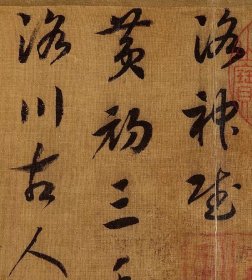 洛神賦
黃初三年
洛川古人